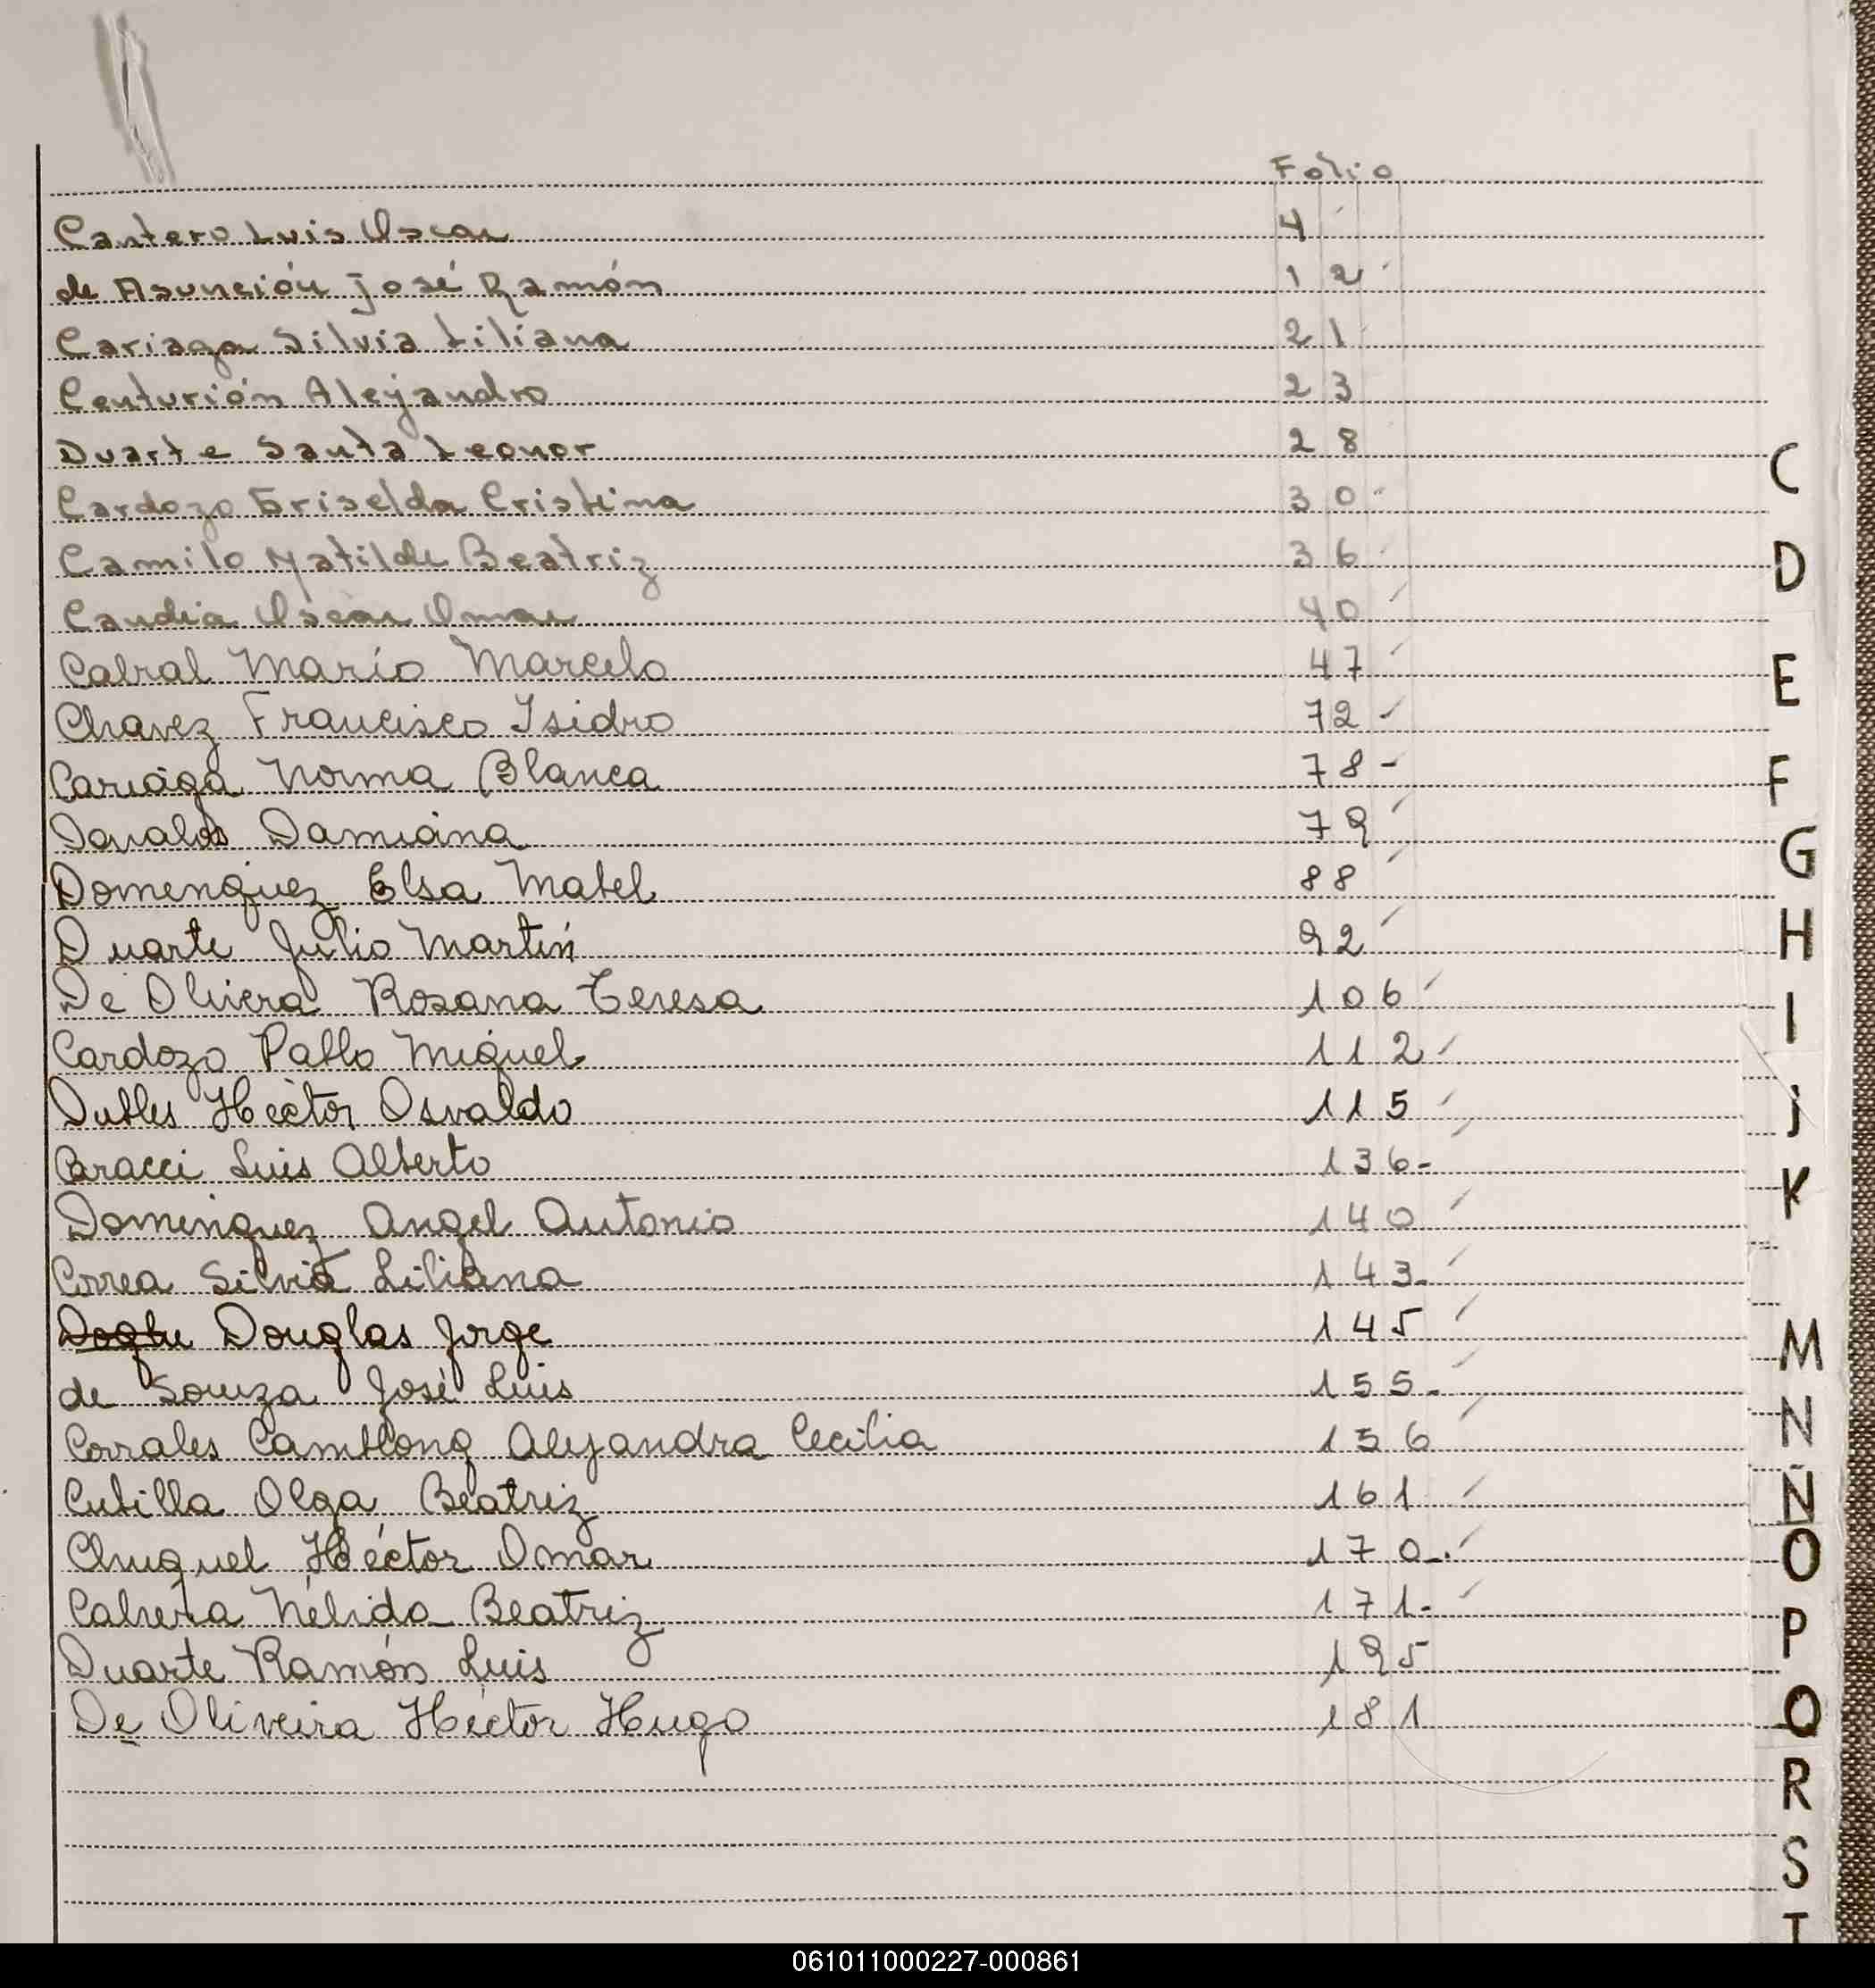 Folio
Cantero Luis Oscar 4
de Asunción José Ramón 12
Cariaga Silvia Liliana 21
Centurión Alejandro 23
Duarte Santa Leonor 28
Cardozo Griselda Cristina 30
Camilo Matilde Beatriz 36
Candia Oscar Omar 40
Cabral Mario Marcelo 47
Chavez Francisco Isidro 72
Cariaga Norma Blanca 78
Davalos Damiana 79
Domenguez Elsa Mabel 88
Duarte Julio Martín 92
De Olivera Rosana Teresa 106
Cardozo Pablo Miguel 112
Dubles Héctor Osvaldo 115
Caracci Luis Alberto 136
Dominguez Angel Antonio 140
Correa Silvia Liliana 143
Douglas Jorge 145
de Souza José Luis 155
Corrales Camblong Alejandra Cecilia 156
Cubilla Olga Beatriz 161
Chuquel Héctor Omar 170
Cabrera Nélida Beatriz 171
Duarte Ramón Luis 195
De Oliveira Héctor Hugo 181
C
D
E
F
G
H
I
J
K
M
N
Ñ
O
P
Q
R
S
T
061011000227-000861